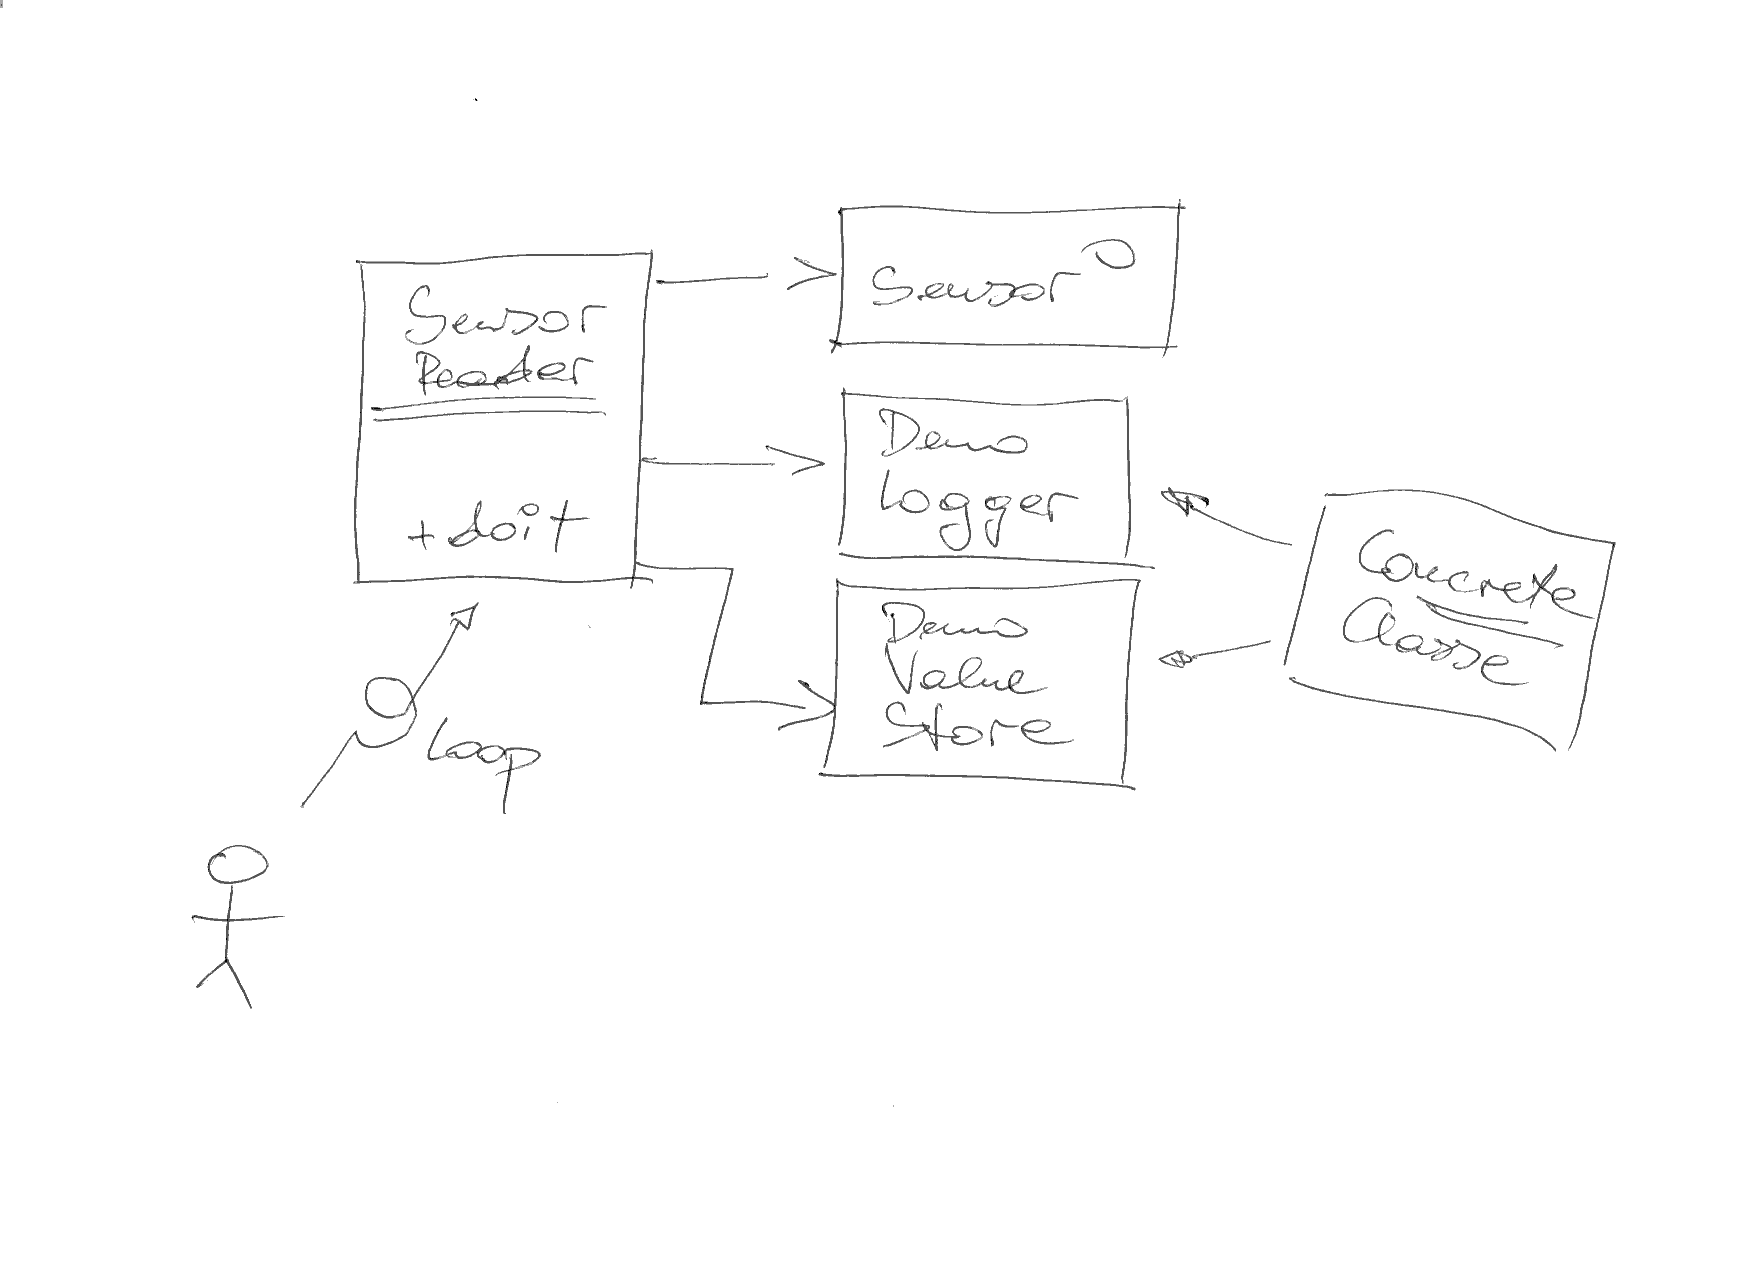 Sensor
Reader
+ doit
Sensor
Demo
Logger
Demo
Value
Store
Concrete
Classe
Loop